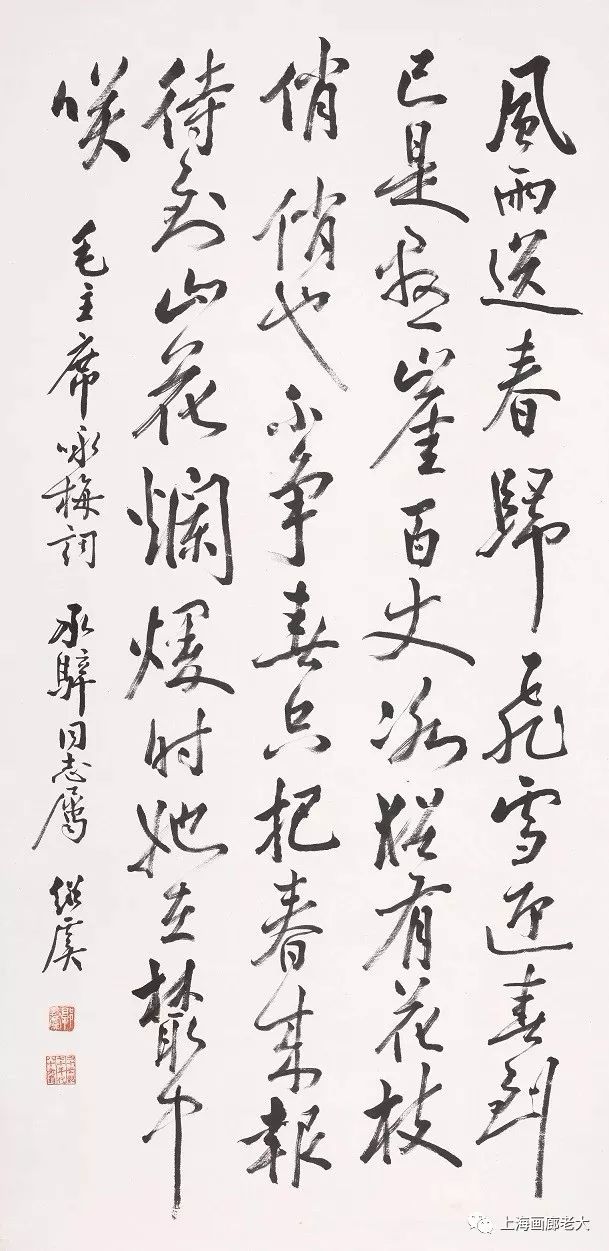 風雨送春歸飛雪迎春到
已是懸崖百丈冰猶有花枝
俏俏也不争春只把春来報
待到山花爛熳时她在叢中
咲 毛主席咏梅词 承騂同志属 继虞
上海画廊老大